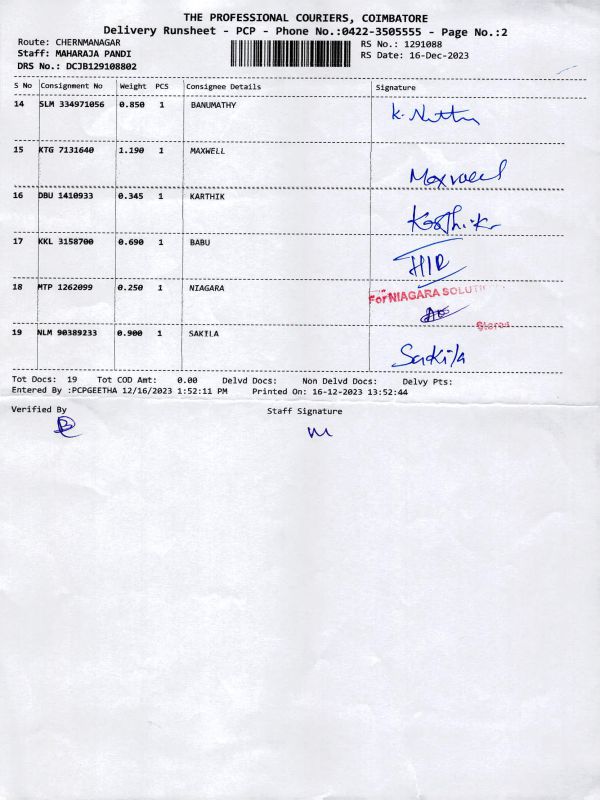 THE PROFESSIONAL COURIERS, COIMBATORE
Delivery Runsheet - PCP - Phone No.:0422-3505555 - Page No.:2
Route: CHERNMANAGAR RS No.: 1291088
Staff: MAHARAJA PANDI RS Date: 16-Dec-2023
DRS No.: DCJB129108802
S No Consignment No Weight PCS Consignee Details Signature
14 SLM 334971056 0.850 1 BANUMATHY
15 KTG 7131640 1.190 1 MAXWELL Maxwell
16 DBU 1410933 0.345 1 KARTHIK Karthik
17 KKL 3158700 0.690 1 BABU
18 MTP 1262099 0.250 1 NIAGARA For NIAGARA
Stores
19 NLM 90389233 0.900 1 SAKILA Sakila
Tot Docs: 19 Tot COD Amt: 0.00 Delvd Docs: Non Delvd Docs: Delvy Pts:
Entered By :PCPGEETHA 12/16/2023 1:52:11 PM Printed On: 16-12-2023 13:52:44
Verified By Staff Signature